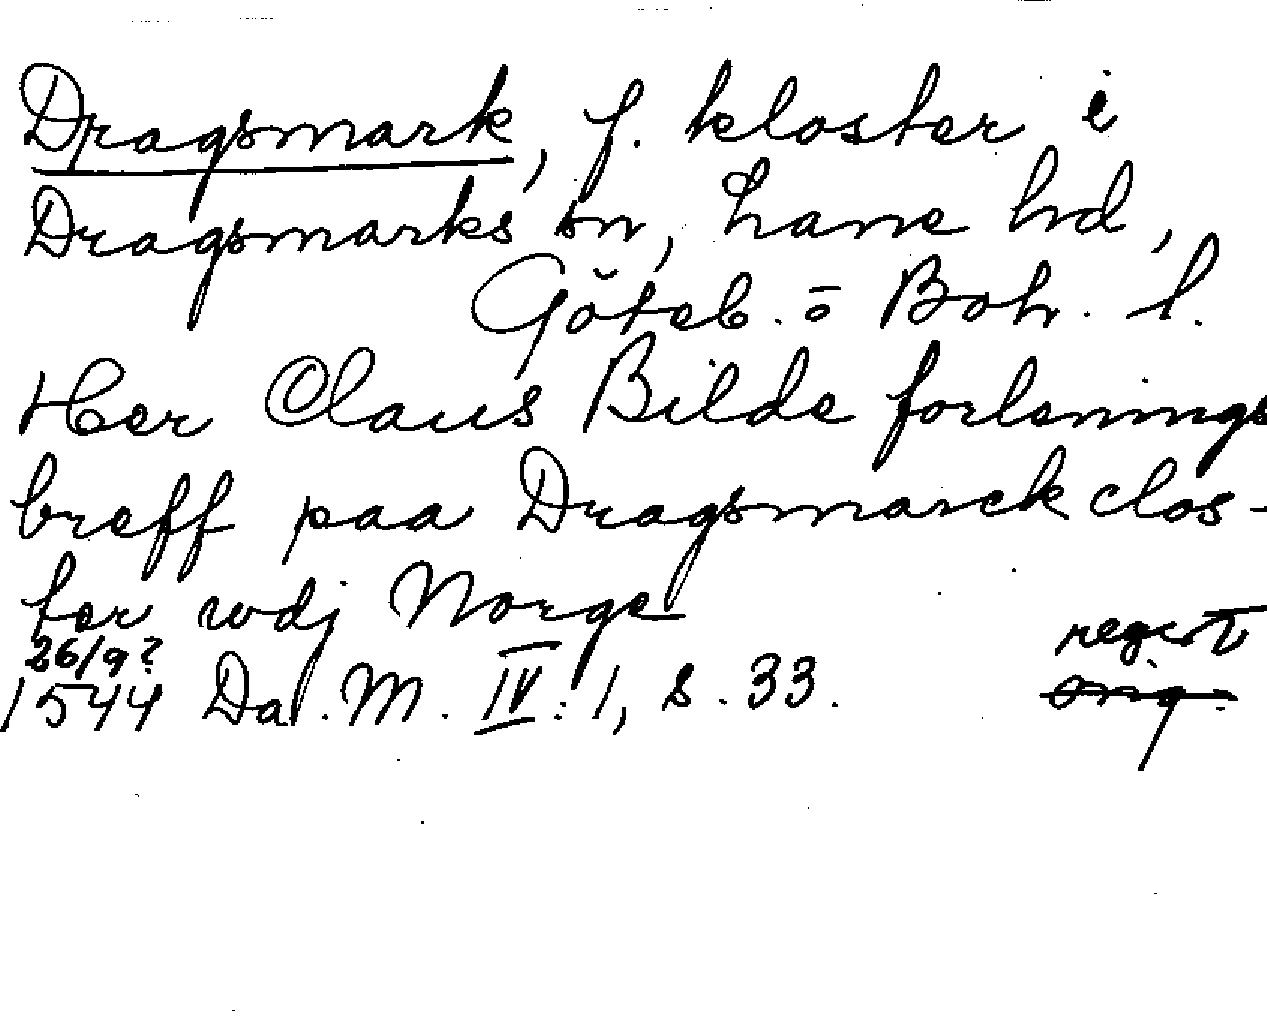 Dragsmark, f. kloster i
Dragsmarks sn, Lane hd,
Göteb. o Boh. l.
Her Claus Bilde forlenings
breff paa Dragsmarck clos-
ter wdj Norge
26/9? regest
1544 Da. M. IV: 1, s. 33. orig.